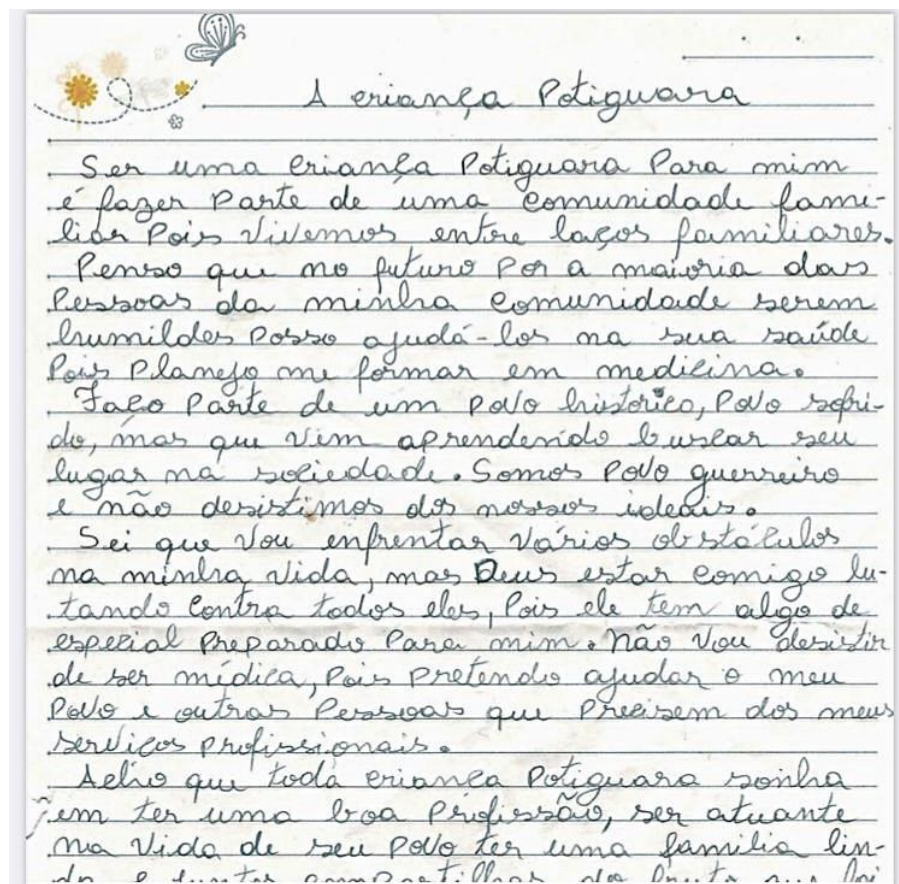 A criança Potiguara
Ser uma criança Potiguara Para mim
é fazer Parte de uma comunidade fami-
liar Pois Vivemos entre laços familiares.
Penso que no futuro Por a maioria das
Pessoas da minha comunidade serem
humildes Posso ajudá-los na sua saúde
Pois Planejo me formar em medicina.
Faço Parte de um Povo histórico, Povo sofri-
do, mas que vim aprendendo buscar seu
lugar na sociedade. Somos Povo guerreiro
e não desistimos dos nossos ideais.
Sei que Vou enfrentar Vários obstáculos
na minha Vida, mas Deus estar comigo lu-
tando contra todos eles, Pois ele tem algo de
especial Preparado Para mim. não Vou desistir
de ser médica, Pois Pretendo ajudar o meu
Povo e outras Pessoas que Precisem dos meus
serviços Profissionais.
Acho que toda criança Potiguara sonha
em ter uma boa Profissão, ser atuante
na Vida de seu Povo ter uma família lin-
da e juntos compartilhar do fruto que foi